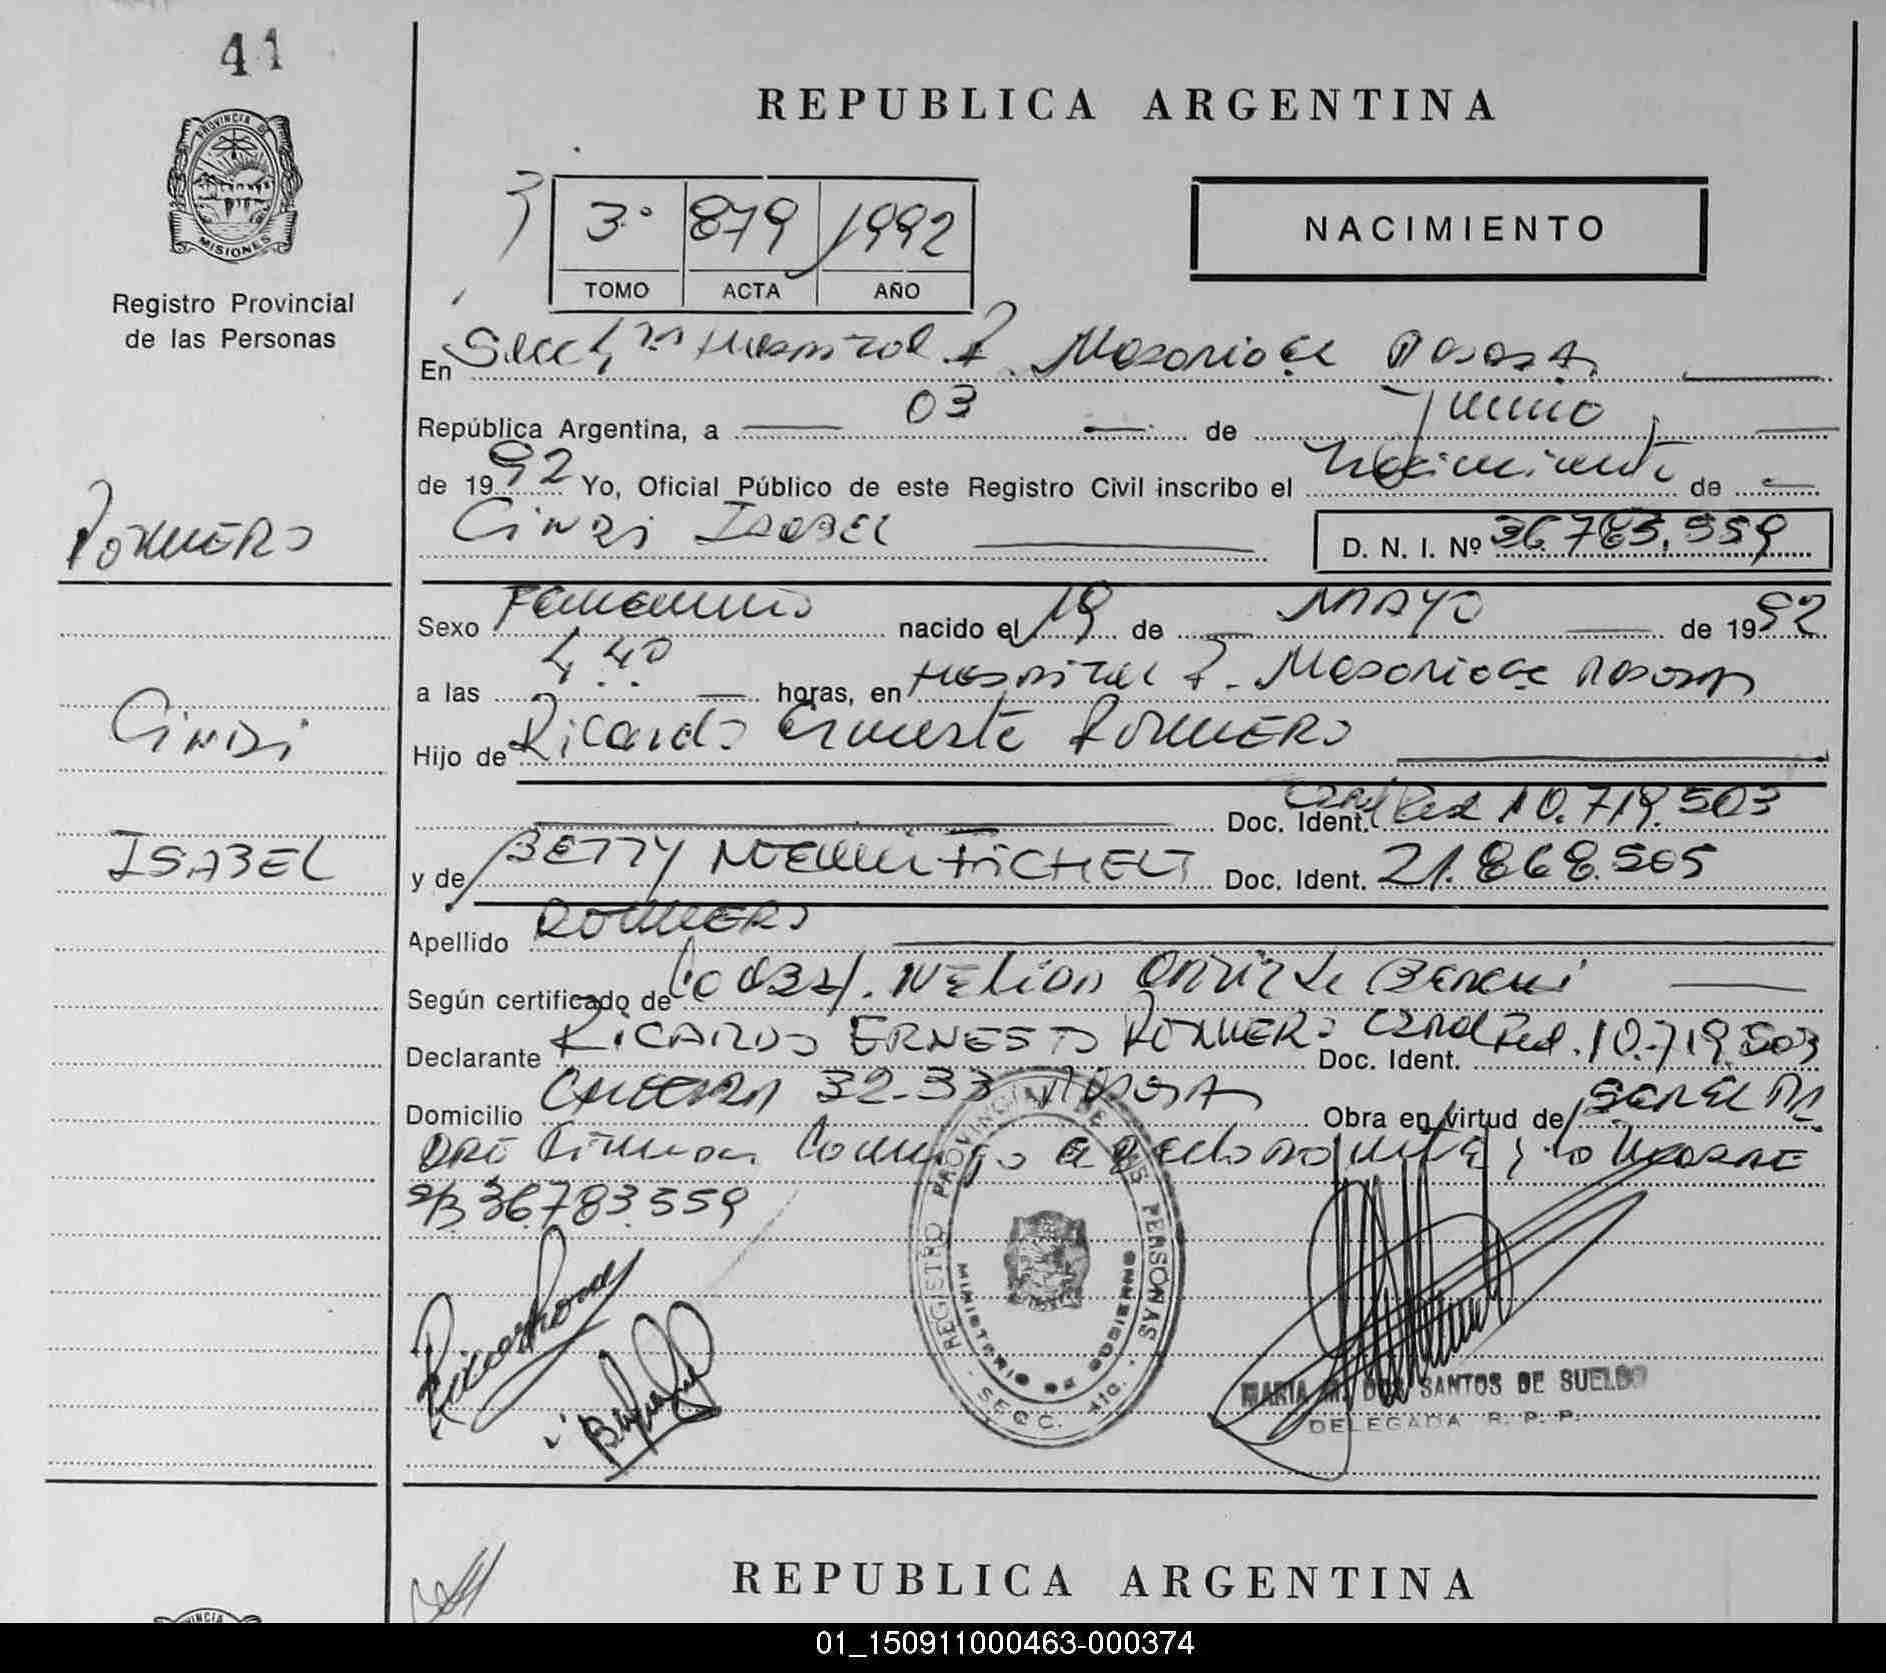 41
REPUBLICA ARGENTINA
PROVINCIA DE
MISIONES
Registro Provincial
de las Personas
3
3º 879 1992
TOMO ACTA AÑO
NACIMIENTO
En Secc Hospital R. Madariaga Posadas
República Argentina, a 03 de Junio
de 1992 Yo, Oficial Público de este Registro Civil inscribo el Nacimiento de
ROMERO
Cindi ISABEL
D. N. I. Nº 36.783.559
Sexo Femenino nacido el 19 de MAYO de 1992
a las 4.40 horas, en Hospital R. Madariaga Posadas
Cindi
Hijo de Ricardo Ernesto ROMERO
Doc. Ident. Ced 10.719.503
ISABEL
y de BETTY NOEMI Doc. Ident. 21.868.505
Apellido ROMERO
Según certificado de
Declarante RICARDO ERNESTO ROMERO Doc. Ident. 10.719.503
Domicilio CHACRA 32-33 POSADAS Obra en virtud de
36.783.559
REGISTRO PROVINCIAL DE LAS PERSONAS
MINISTERIO DE GOBIERNO
SECC.
MARIA M. DOS SANTOS DE SUELDO
DELEGADA R. P. P.
REPUBLICA ARGENTINA
01_150911000463-000374